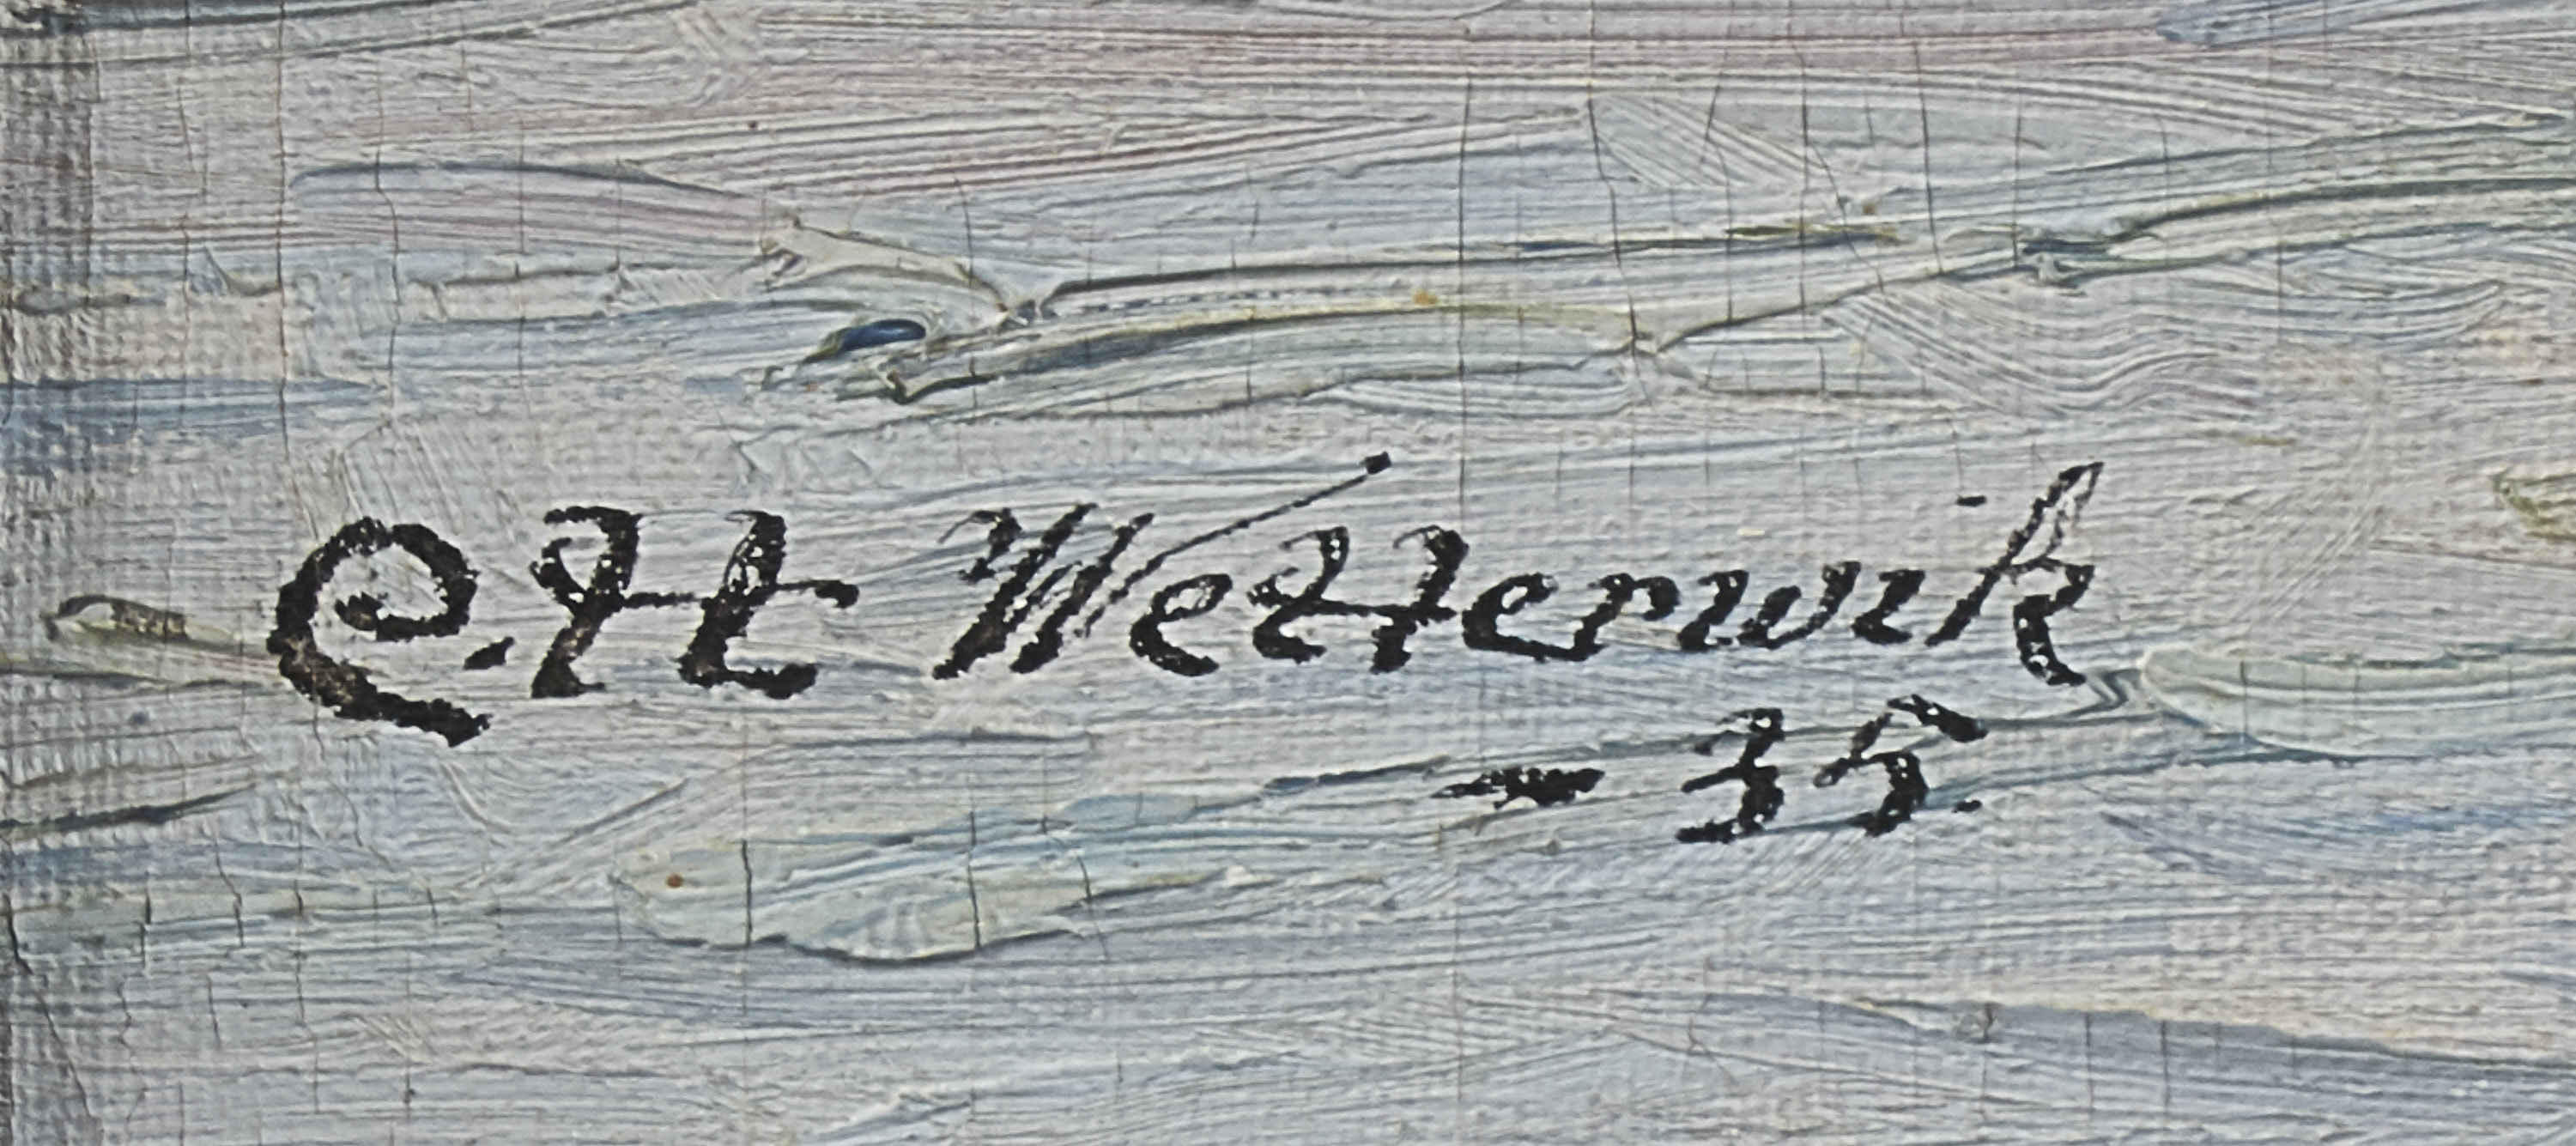 C.H Wetterwik
- 35.